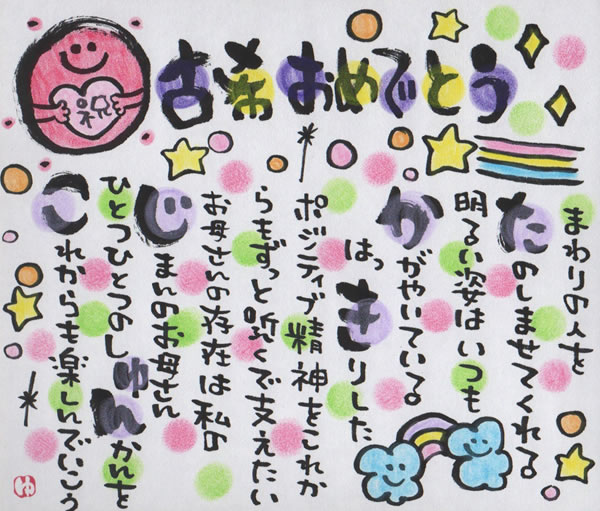 祝
古希おめでとう
まわりの人を
たのしませてくれる
明るい姿はいつも
かがやいている
はっきりした
ポジティブ精神をこれか
らもずっと近くで支えたい
お母さんの存在は私の
じまんのお母さん
ひとつひとつのしゅんかんを
これからも楽しんでいこう
ゆ